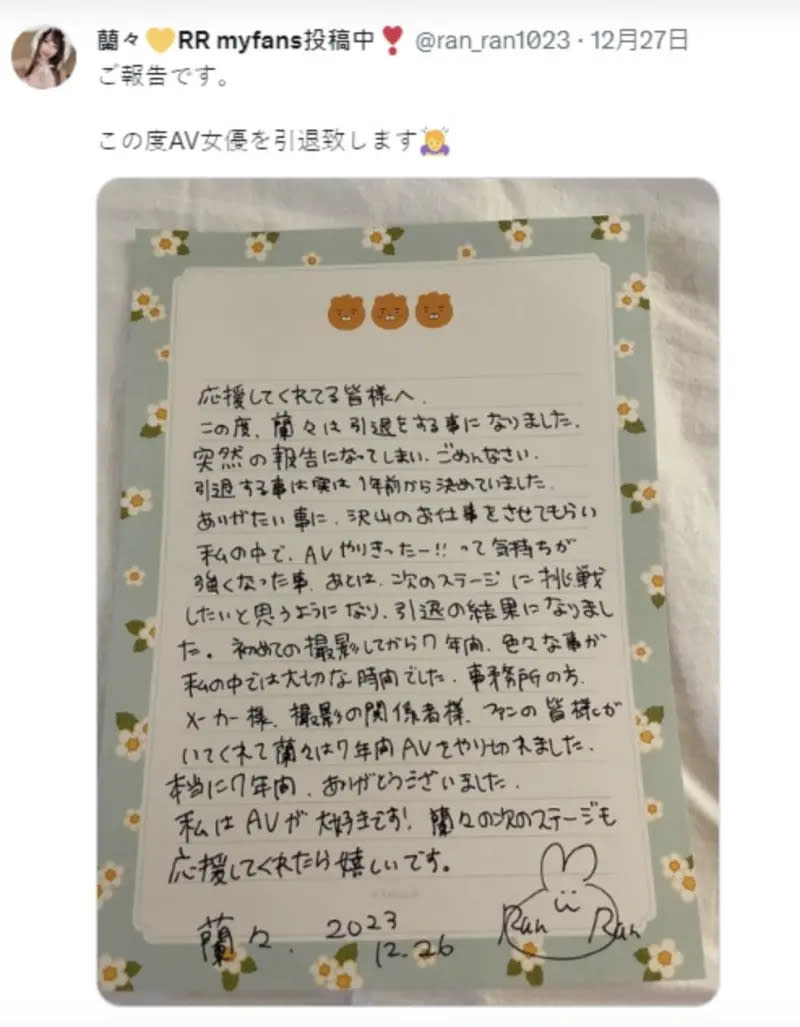 蘭々💛RR myfans投稿中❣️ @ran_ran1023・12月27日
ご報告です。
この度AV女優を引退致します🙇‍♀️
応援してくれてる皆様へ.
この度、蘭々は引退をする事になりました.
突然の報告になってしまい、ごめんなさい.
引退する事は実は1年前から決めていました.
ありがたい事に、沢山のお仕事をさせてもらい
私の中で、AVやりきったー!!って気持ちが
強くなった事、あとは、次のステージに挑戦
したいと思うようになり、引退の結果になりまし
た。初めての撮影してから7年間、色々な事が
私の中では大切な時間でした、事務所の方、
メーカー様、撮影の関係者様、ファンの皆様が
いてくれて蘭々は7年間AVをやり切れました、
本当に7年間、ありがとうございました、
私はAVが大好きです! 蘭々の次のステージも
応援してくれたら嬉しいです。
蘭々. 2023
12.26
Ran Ran